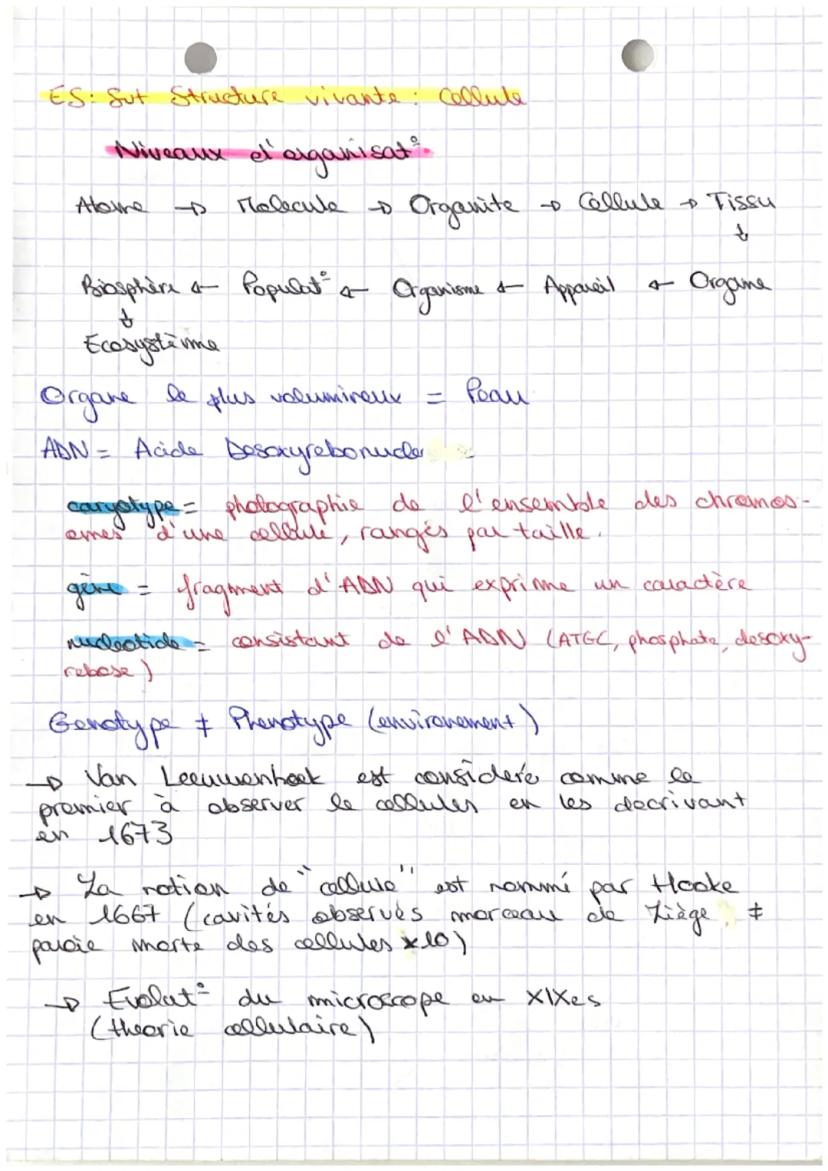 ES: Sut Structure vivante : Cellule
Niveaux d'organisat°.
Atome → Molecule → Organite → Cellule → Tissu
↓
Biosphère ← Populat° ← Organisme ← Appareil ← Organe
↓
Ecosystème
Organe le plus volumineux = Peau
ADN = Acide Desoxyrebonucle
caryotype = photographie de l'ensemble des chromos-
emes d'une cellule, rangés par taille.
gène = fragment d'ADN qui exprime un caractère
nucleotide = consistant de l'ADN (ATGC, phosphate, desoxy-
rebose)
Genotype ≠ Phenotype (environement)
→ Van Leeuwenhoek est considéré comme le
premier à observer le cellules en les decrivant
en 1673
→ La notion de "cellule" est nommé par Hooke
en 1667 (cavités observés morceau de Liège, ≠
paroie morte des cellules x10)
→ Evolut° du microscope en XIXes
(theorie cellulaire)